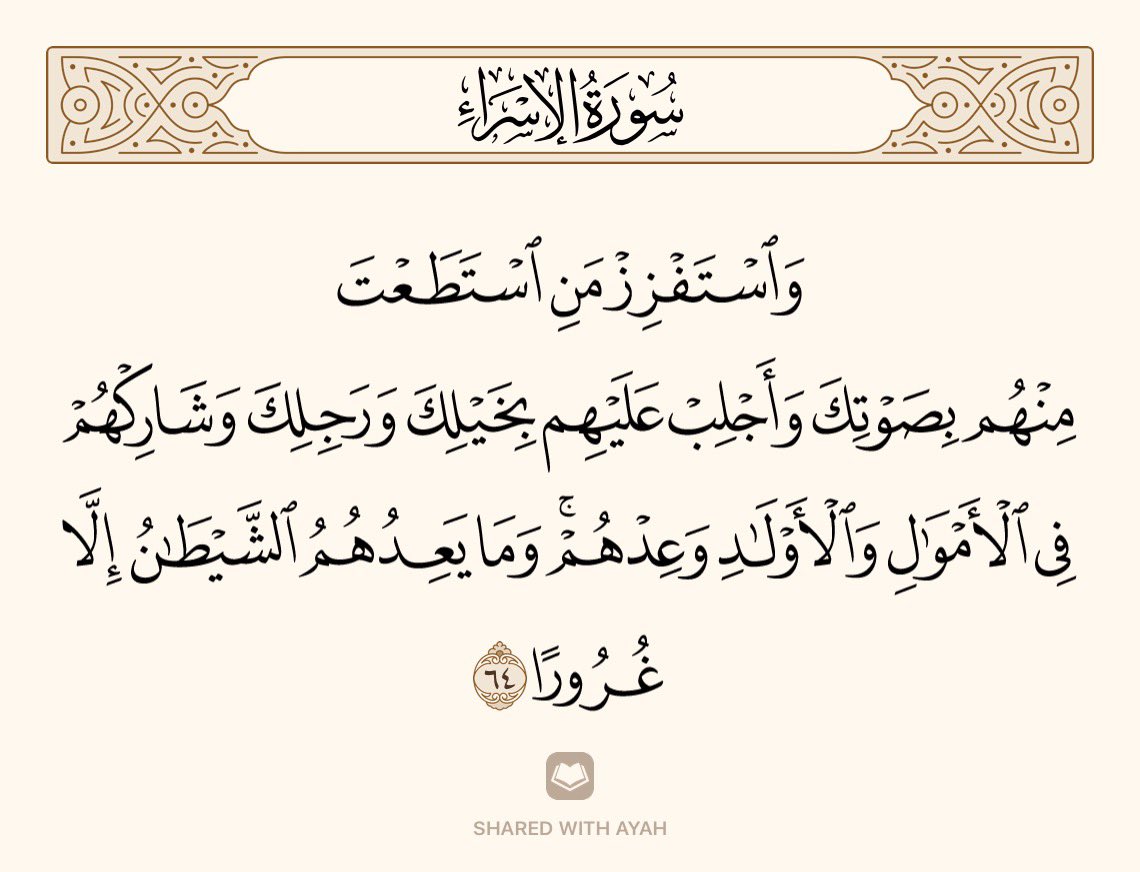 سُورَةُ الإِسْرَاءِ
وَٱسْتَفْزِزْ مَنِ ٱسْتَطَعْتَ
مِنْهُم بِصَوْتِكَ وَأَجْلِبْ عَلَيْهِم بِخَيْلِكَ وَرَجِلِكَ وَشَارِكْهُمْ
فِى ٱلْأَمْوَٰلِ وَٱلْأَوْلَـٰدِ وَعِدْهُمْ ۚ وَمَا يَعِدُهُمُ ٱلشَّيْطَـٰنُ إِلَّا
غُرُورًا ٦٤
SHARED WITH AYAH